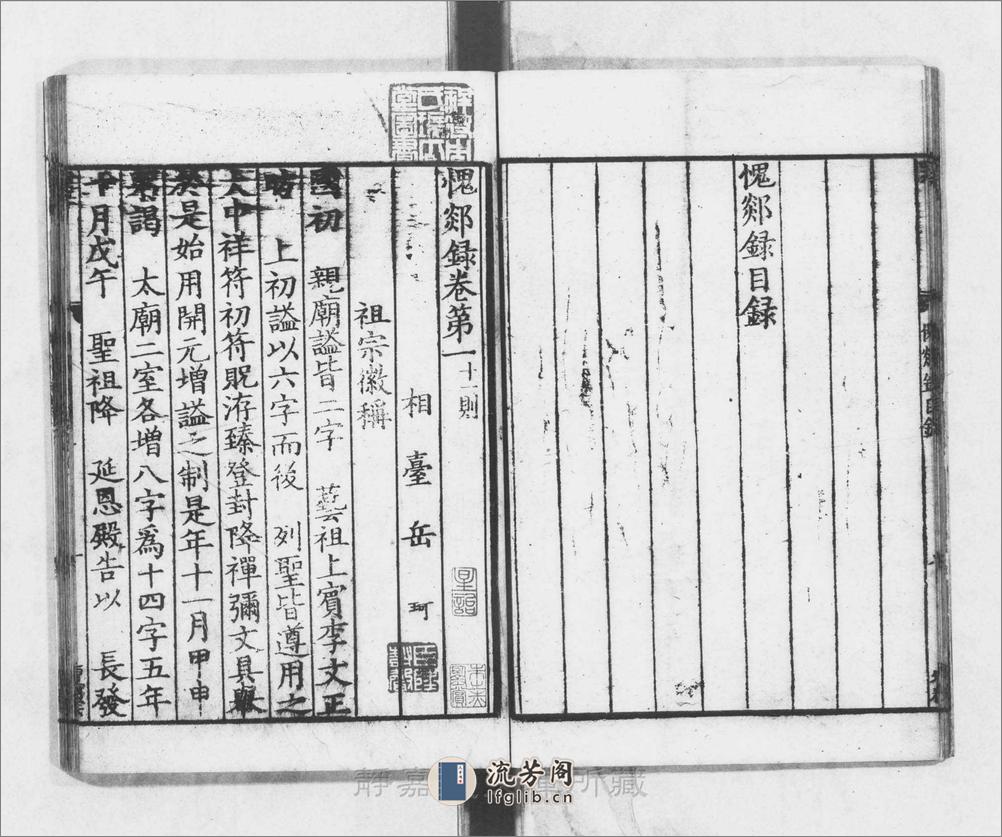 愧郯録目録
愧郯録卷第一 十一則
相臺岳 珂
祖宗徽稱
國初 親廟謚皆二字 藝祖上賓李文正
昉 上初謚以六字而後 列聖皆遵用之
大中祥符初符貺洊臻登封降禪彌文具舉
於是始用開元增謚之制是年十一月甲申
朝謁 太廟二室各增八字爲十四字五年
十月戊午 聖祖降 延恩殿告以 長發
流芳阁
lfglib.cn